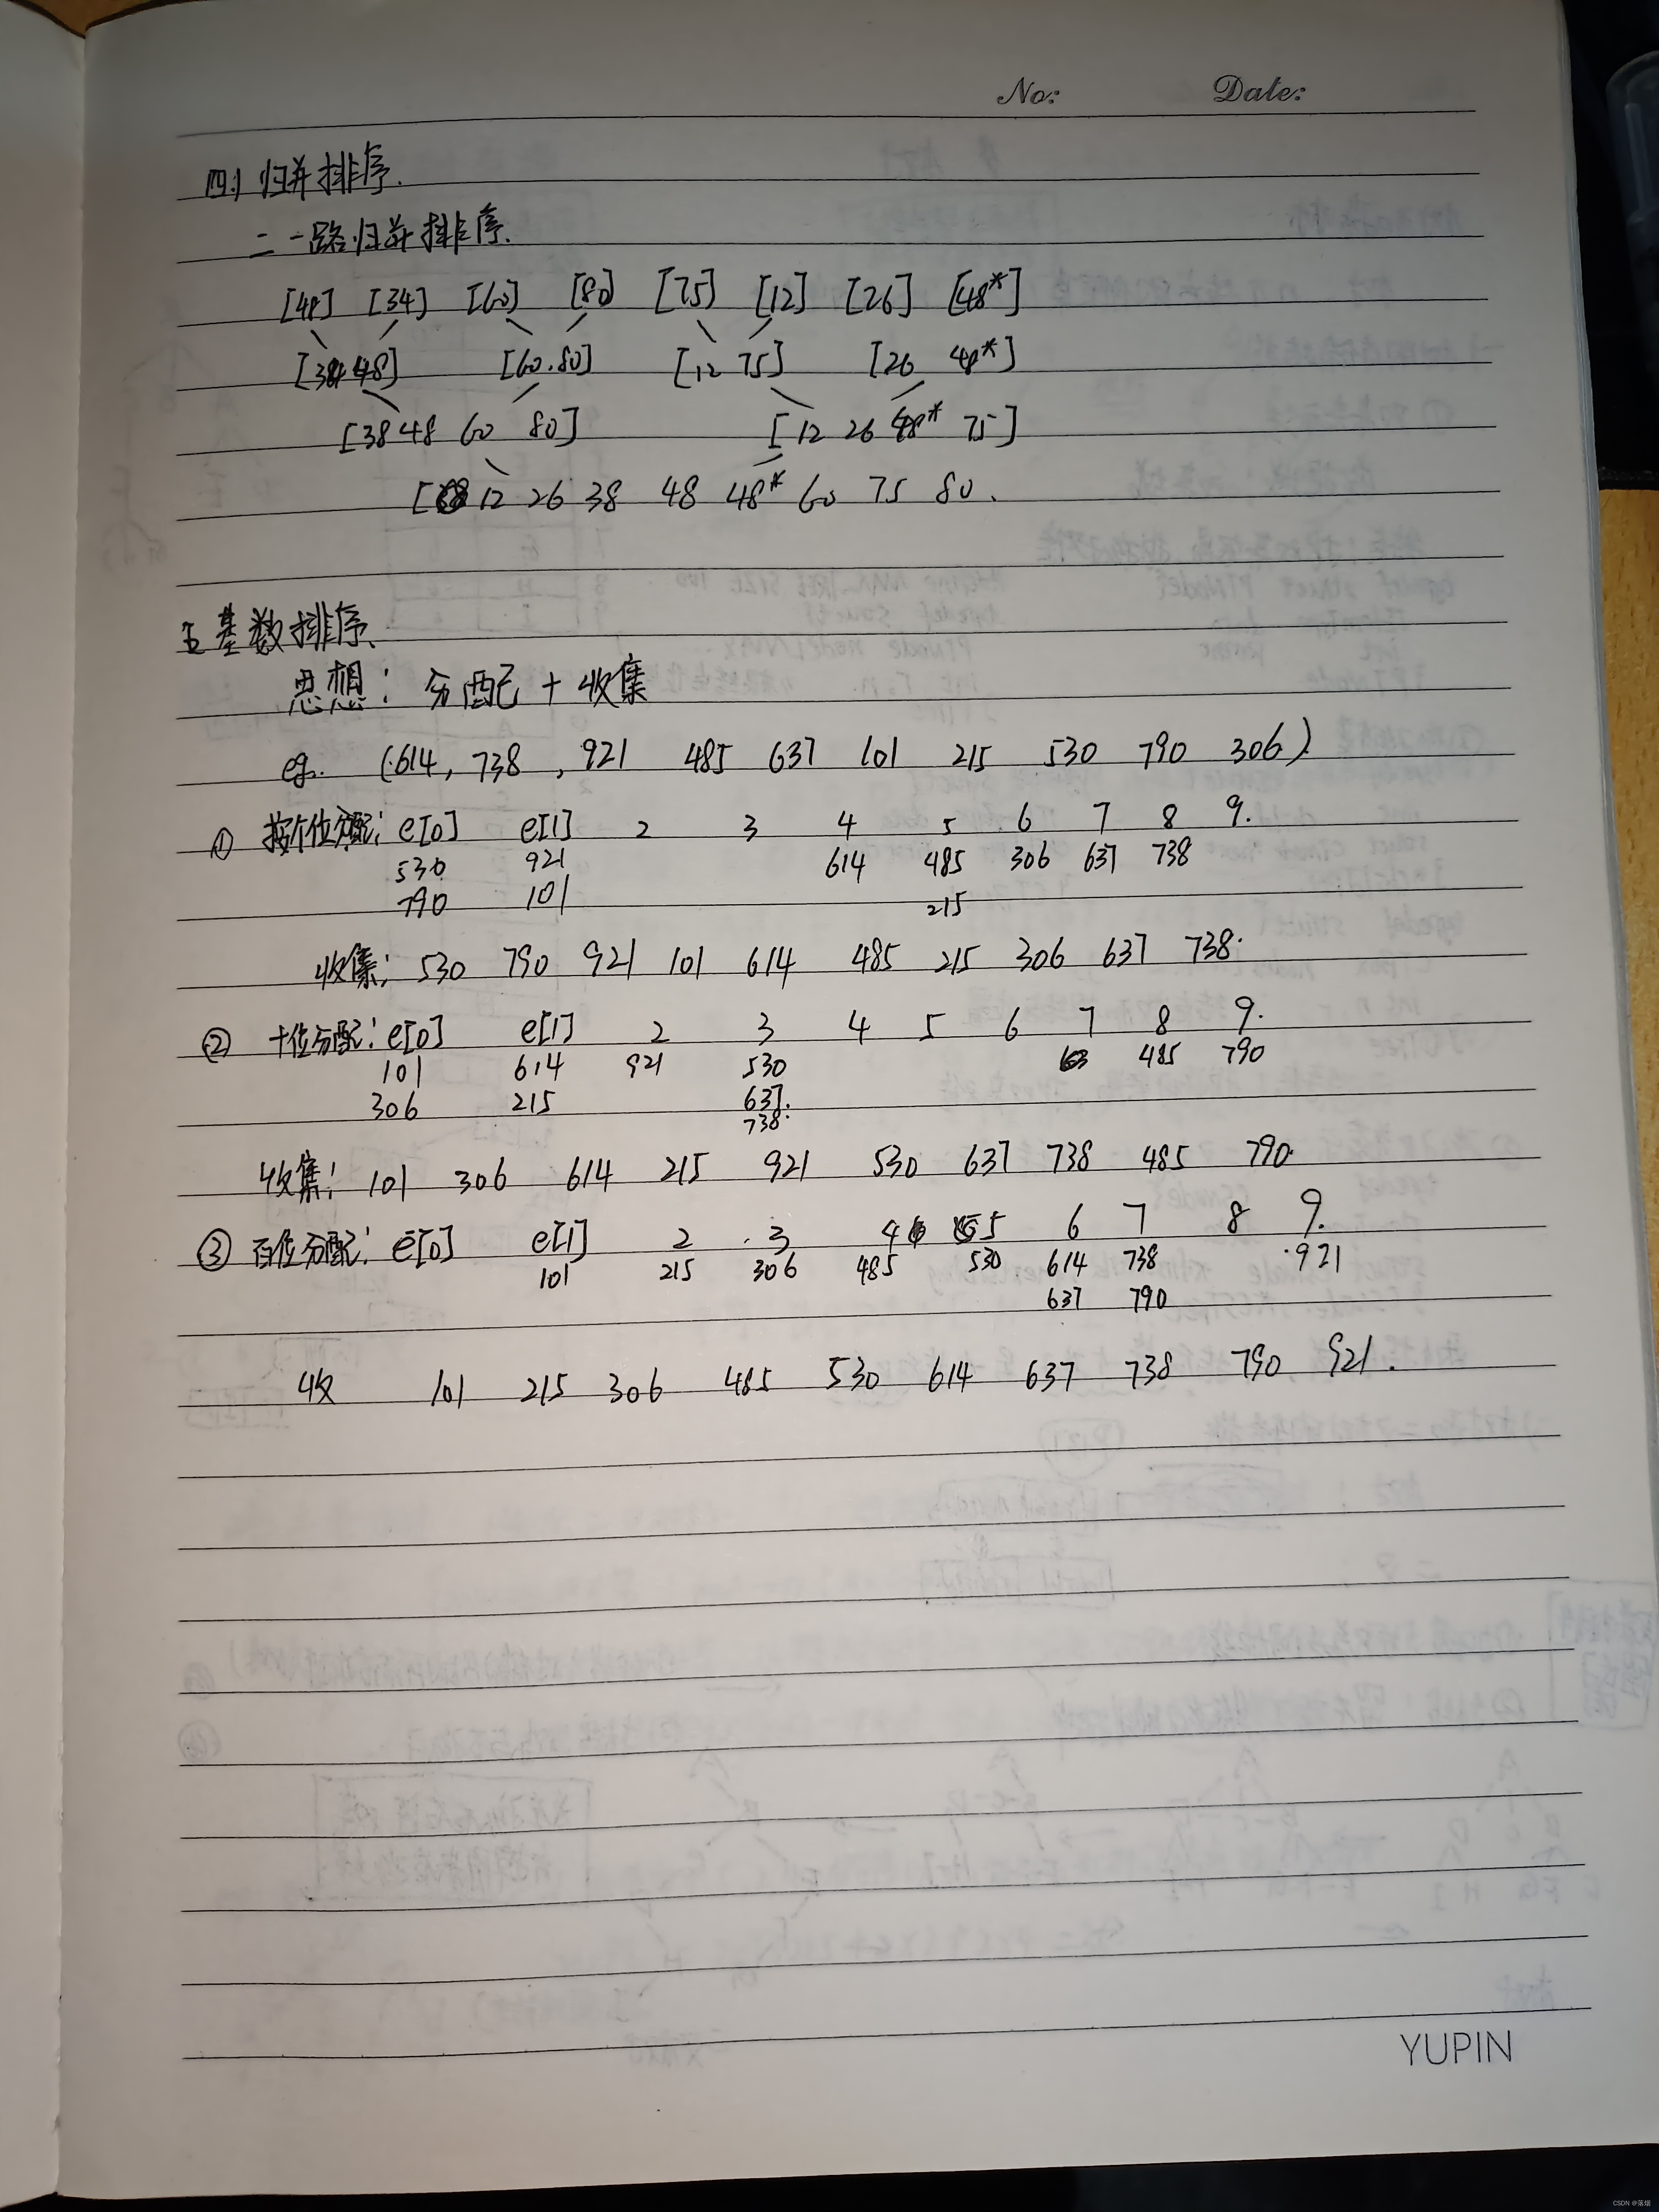 No: Date:
四、归并排序.
二一路归并排序.
[48] [34] [60] [80] [75] [12] [26] [48*]
[34 48] [60.80] [12 75] [26 48*]
[38 48 60 80] [12 26 48* 75]
[12 26 38 48 48* 60 75 80.
五 基数排序、
思想: 分配 + 收集
eg. (614, 738, 921 485 637 101 215 530 790 306)
① 按个位分配: e[0] e[1] 2 3 4 5 6 7 8 9.
530 921 614 485 306 637 738
790 101 215
收集: 530 790 921 101 614 485 215 306 637 738.
② 十位分配: e[0] e[1] 2 3 4 5 6 7 8 9.
101 614 921 530 485 790
306 215 637.
738.
收集: 101 306 614 215 921 530 637 738 485 790.
③ 百位分配: e[0] e[1] 2 3 4 5 6 7 8 9.
101 215 306 485 530 614 738 921
637 790
收 101 215 306 485 530 614 637 738 790 921.
YUPIN
CSDN @落烟